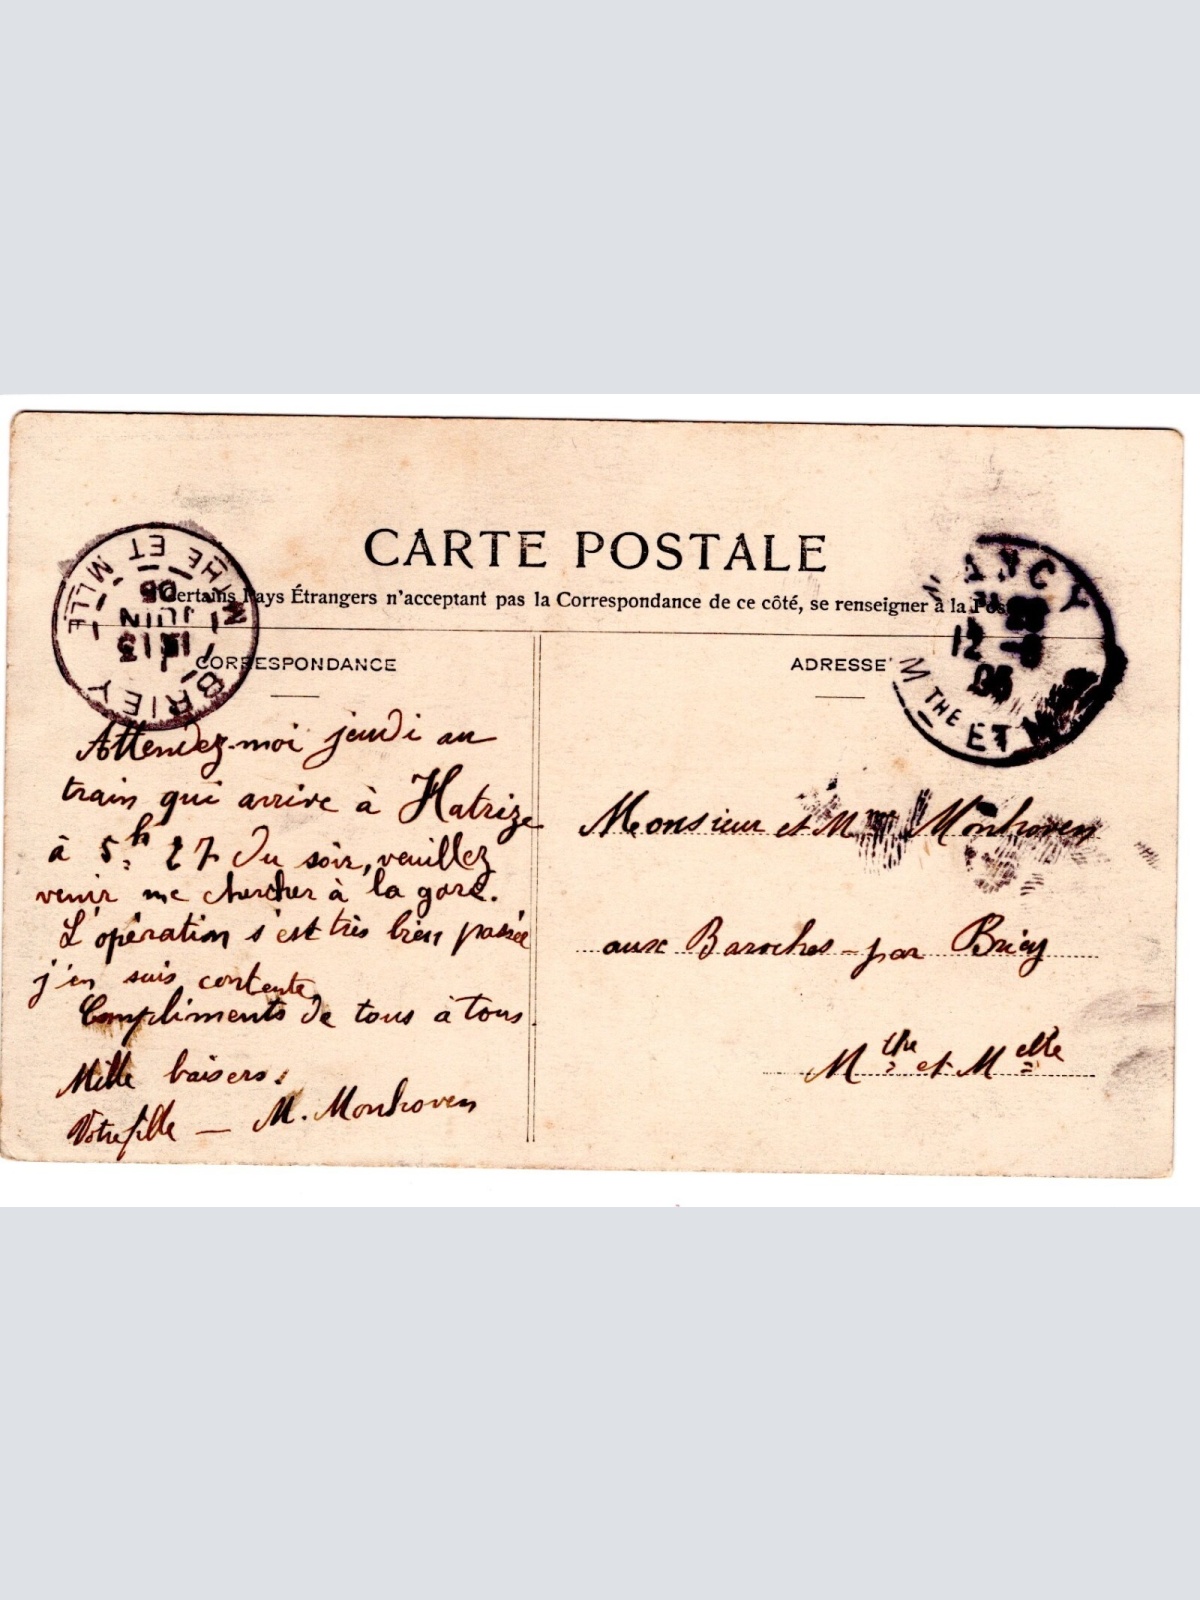 CARTE POSTALE
Certains Pays Étrangers n'acceptant pas la Correspondance de ce côté, se renseigner à la Pos
CORRESPONDANCE
ADRESSE
BRIEY
13 JUIN 05
MTHE ET MLLE
NANCY
12 -6
05
MTHE ET M
Attendez-moi jeudi au
train qui arrive à Hatrize
à 5h 27 du soir, veuillez
venir me chercher à la gare.
L'opération s'est très bien passée
j'en suis contente,
Compliments de tous à tous.
Mille baisers.
Votre fille — M. Monhoven
Monsieur et Mme Monhoven
aux Baroches - par Briey
Mthe et Melle